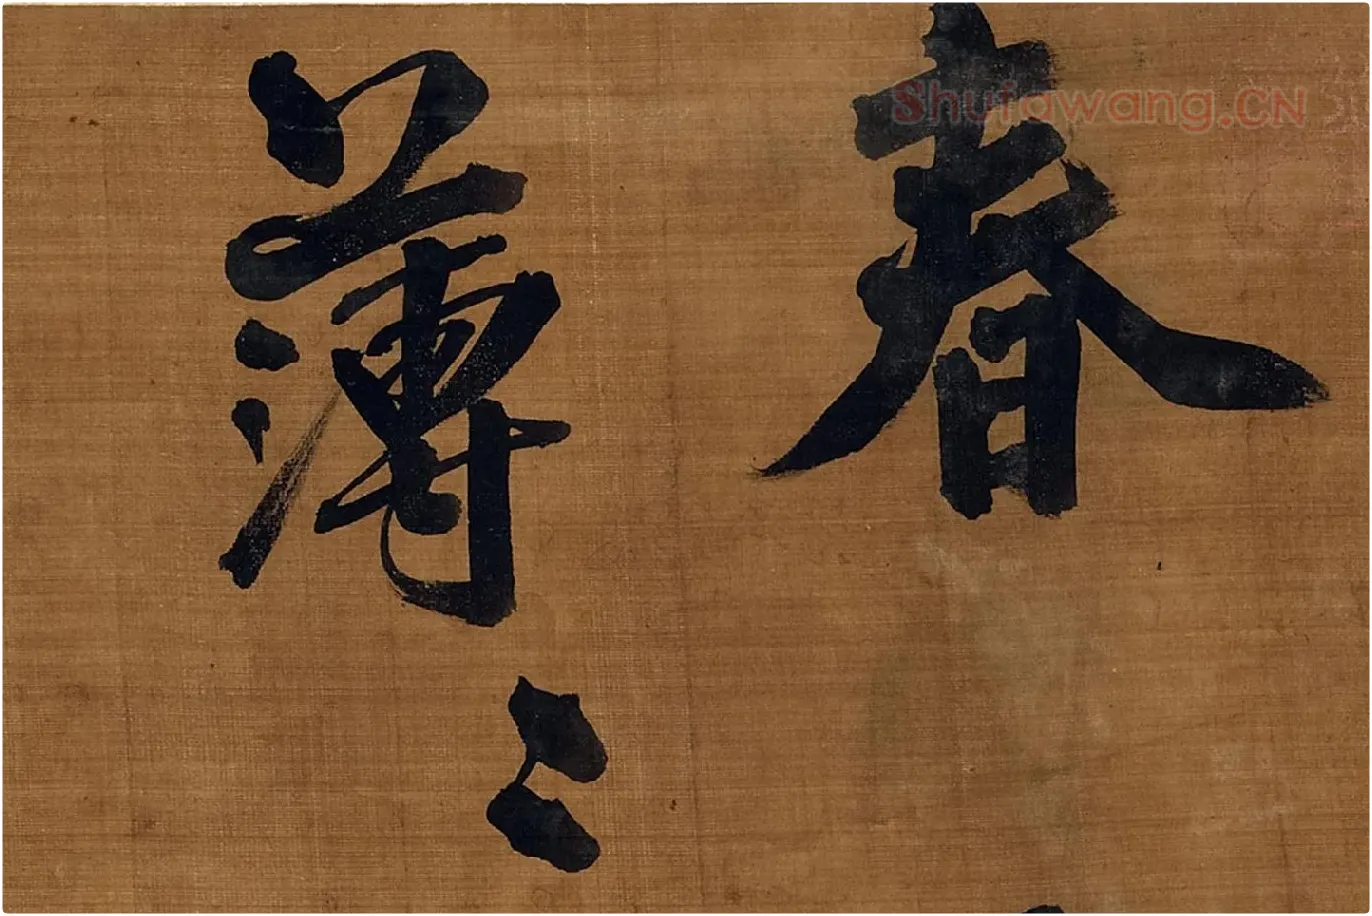 春
薄〻
Shufawang.CN